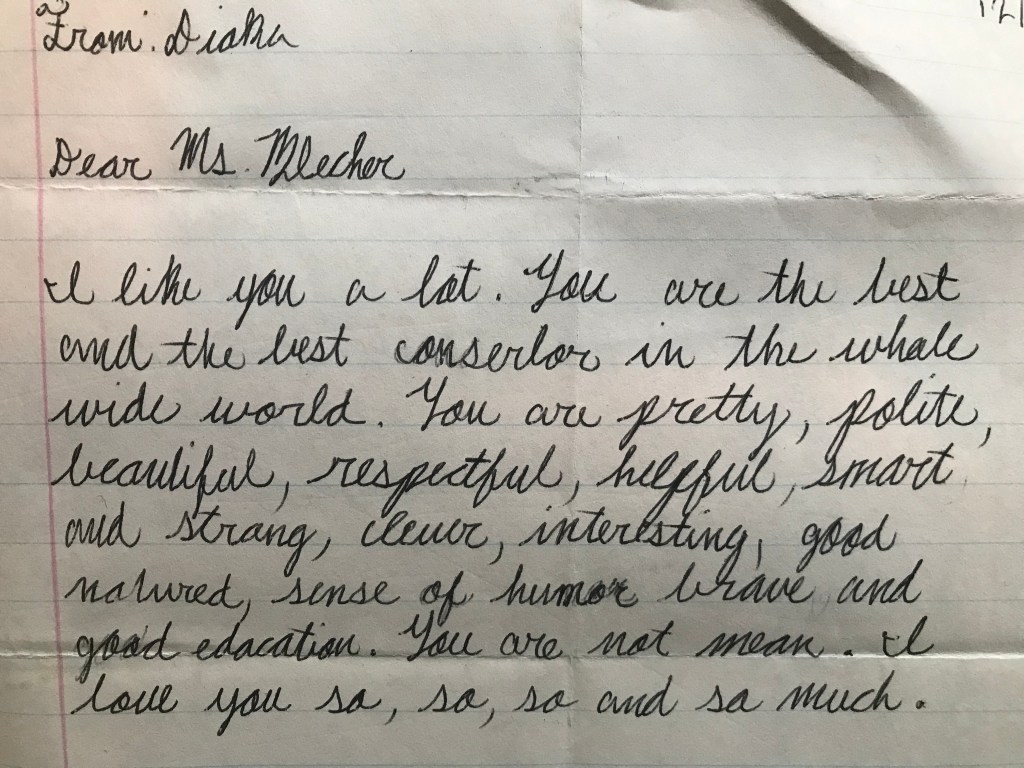 From. Diaka
Dear Ms. Blecher
I like you a lot. You are the best
and the best conserlor in the whole
wide world. You are pretty, polite,
beautiful, respectful, helpful, smart
and strang, clever, interesting, good
natured, sense of humor brave and
good edacation. You are not mean. I
love you so, so, so and so much.